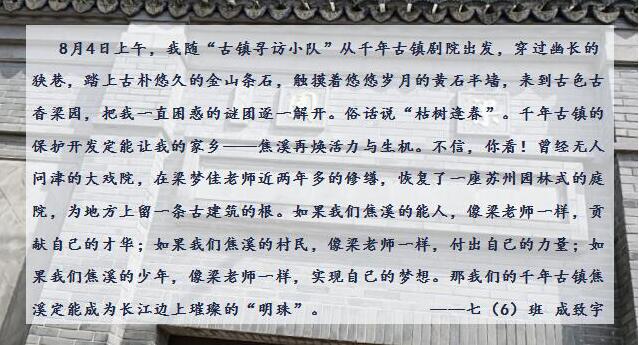 8月4日上午，我随“古镇寻访小队”从千年古镇剧院出发，穿过幽长的
狭巷，踏上古朴悠久的金山条石，触摸着悠悠岁月的黄石半墙，来到古色古
香梁园，把我一直困惑的谜团逐一解开。俗话说“枯树逢春”。千年古镇的
保护开发定能让我的家乡——焦溪再焕活力与生机。不信，你看！曾经无人
问津的大戏院，在梁梦佳老师近两年多的修缮，恢复了一座苏州园林式的庭
院，为地方上留一条古建筑的根。如果我们焦溪的能人，像梁老师一样，贡
献自己的才华；如果我们焦溪的村民，像梁老师一样，付出自己的力量；如
果我们焦溪的少年，像梁老师一样，实现自己的梦想。那我们的千年古镇焦
溪定能成为长江边上璀璨的“明珠”。 ——七（6）班 成致宇